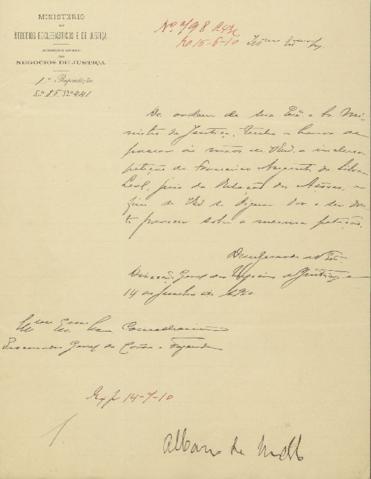 MINISTERIO
DOS
NEGOCIOS ECCLESIASTICOS E DE JUSTIÇA
DIRECÇÃO GERAL
DOS
NEGOCIOS DE JUSTIÇA
1.ª Repartição
Nº 498
15-6-10
De ordem de Sua Exª o Sr. Mi-
nistro da Justiça, tenho a honra de
passar ás mãos de V. Exª, a inclusa
petição de Francisco Augusto da Silva
Leal, juiz da Relação dos Açores, a
fim de V. Exª se dignar dar o seu dou-
to parecer sobre a mesma petição.
Deus Guarde a V. Exª
Direcção Geral dos Negocios de Justiça, em
14 de Junho de 1910
Procurador Geral da Corôa e Fazenda
14-7-10
Albano de Mello